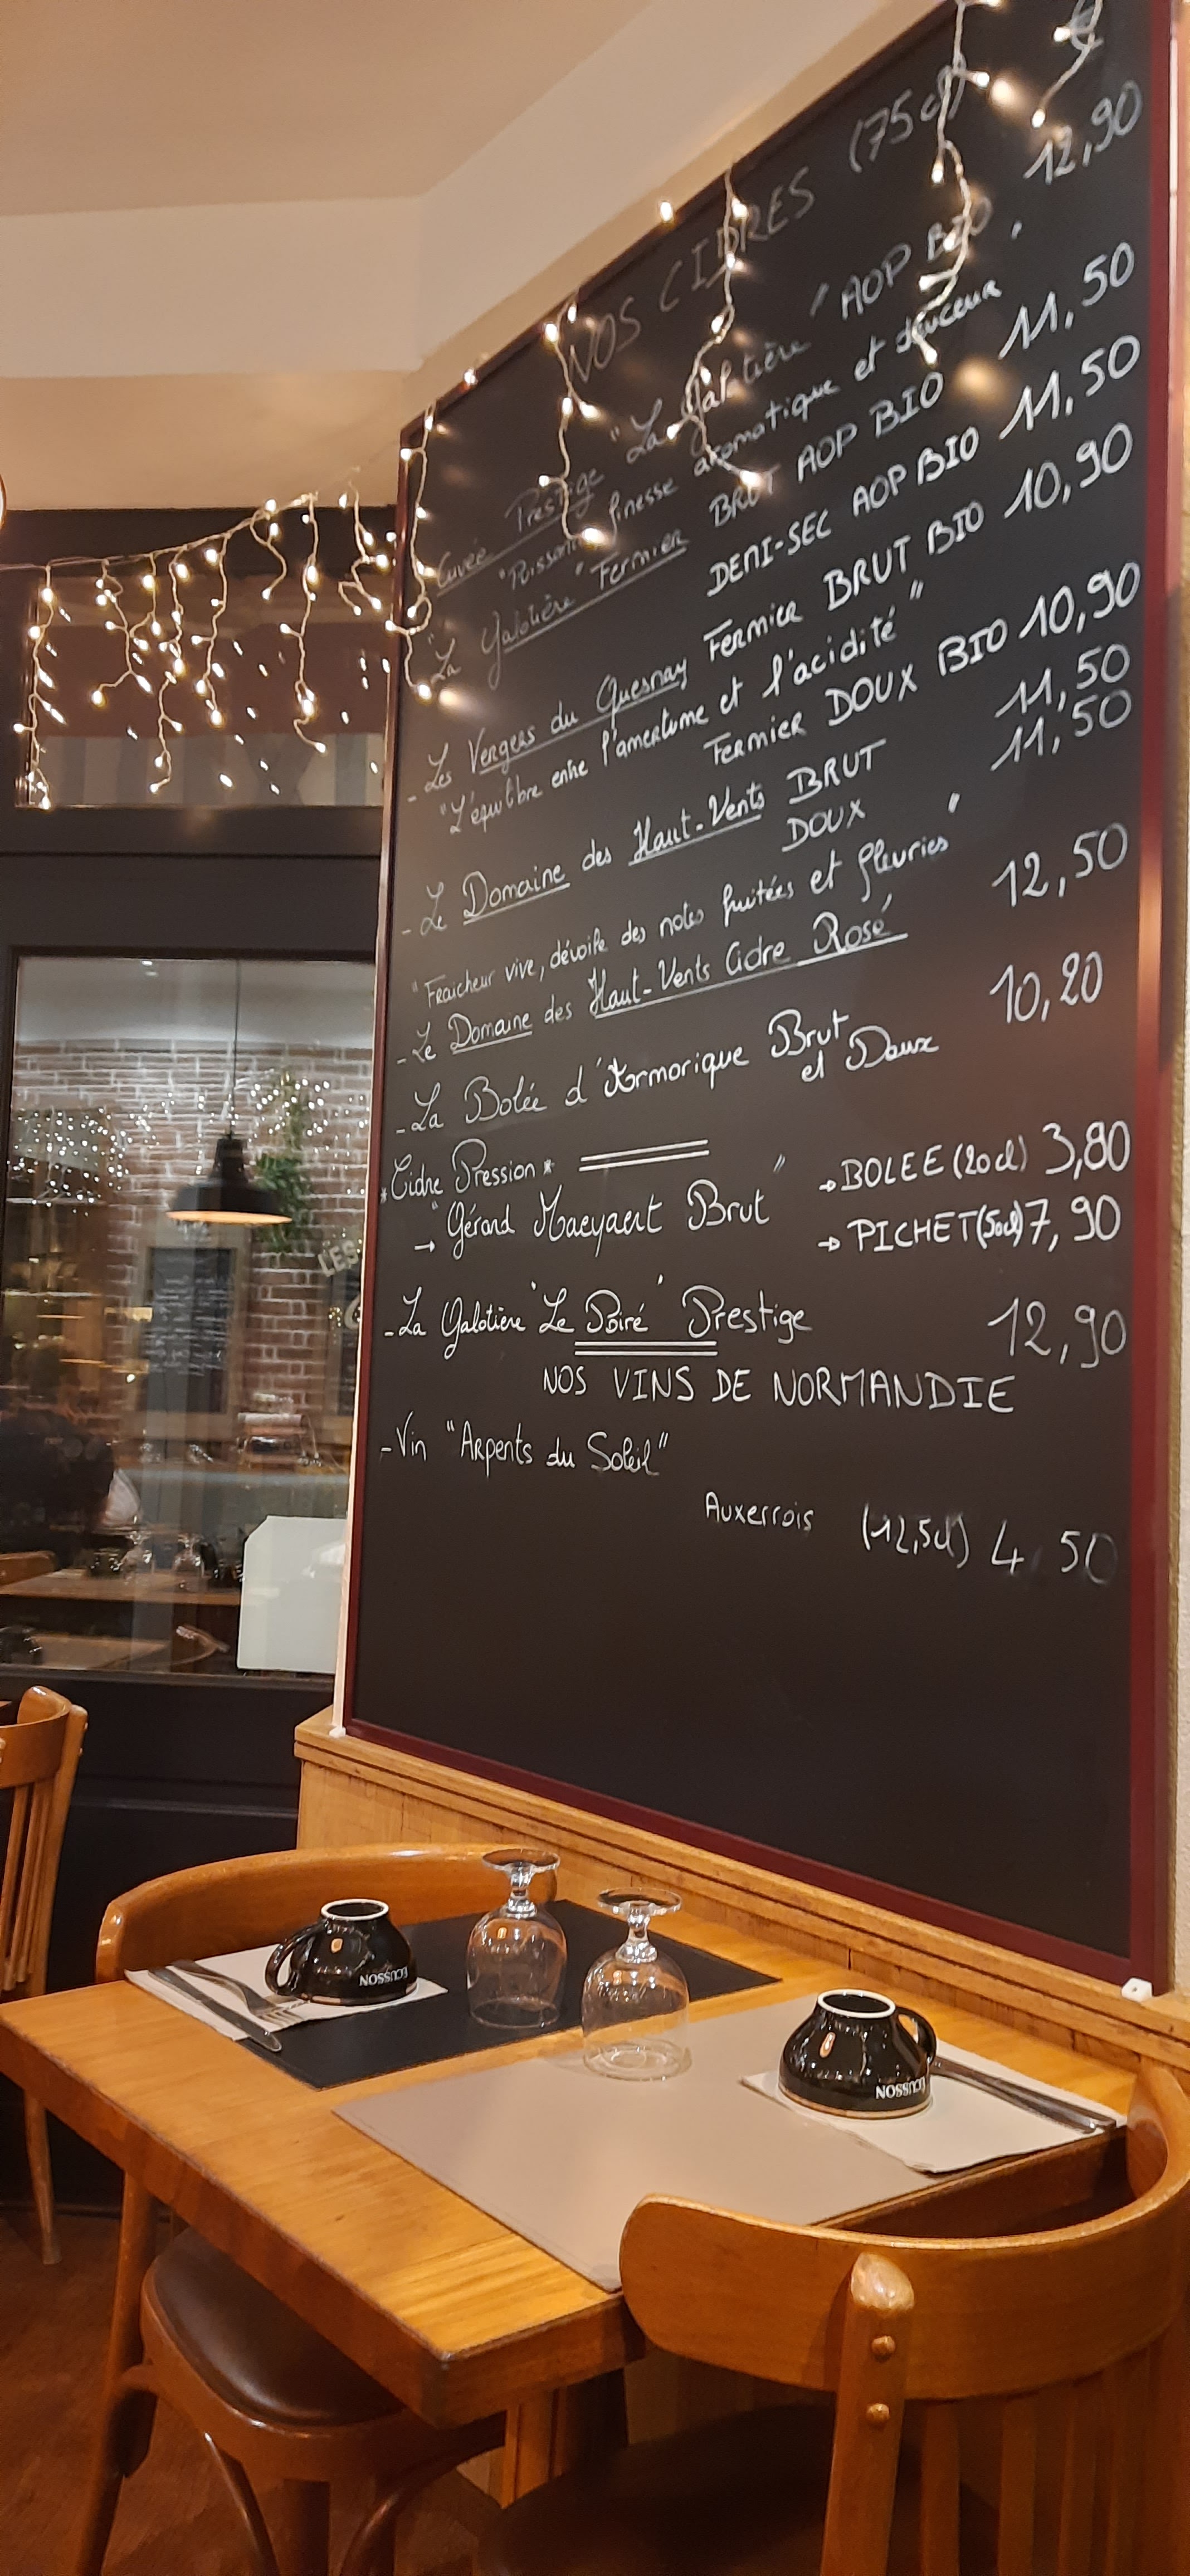 NOS CIDRES (75cl) €
Cuvée Prestige "La Galotière" AOP BIO 12,90
"Puissant, finesse aromatique et douceur"
"La Galotière" Fermier BRUT AOP BIO 11,50
DEMI-SEC AOP BIO 11,50
- Les Vergers du Quesnay Fermier BRUT BIO 10,90
"L'équilibre entre l'amertume et l'acidité"
Fermier DOUX BIO 10,90
- Le Domaine des Haut-Vents BRUT 11,50
DOUX 11,50
"Fraicheur vive, dévoile des notes fruitées et fleuries"
- Le Domaine des Haut-Vents Cidre Rosé 12,50
- La Bolée d'Armorique Brut et Doux 10,20
*Cidre Pression*
→ "Gérard Maeyaert Brut" → BOLEE (20cl) 3,80
→ PICHET (50cl) 7,90
- La Galotière "Le Poiré" Prestige 12,90
NOS VINS DE NORMANDIE
- Vin "Arpents du Soleil"
Auxerrois (12,5cl) 4,50
LES
ECUSSON
ECUSSON